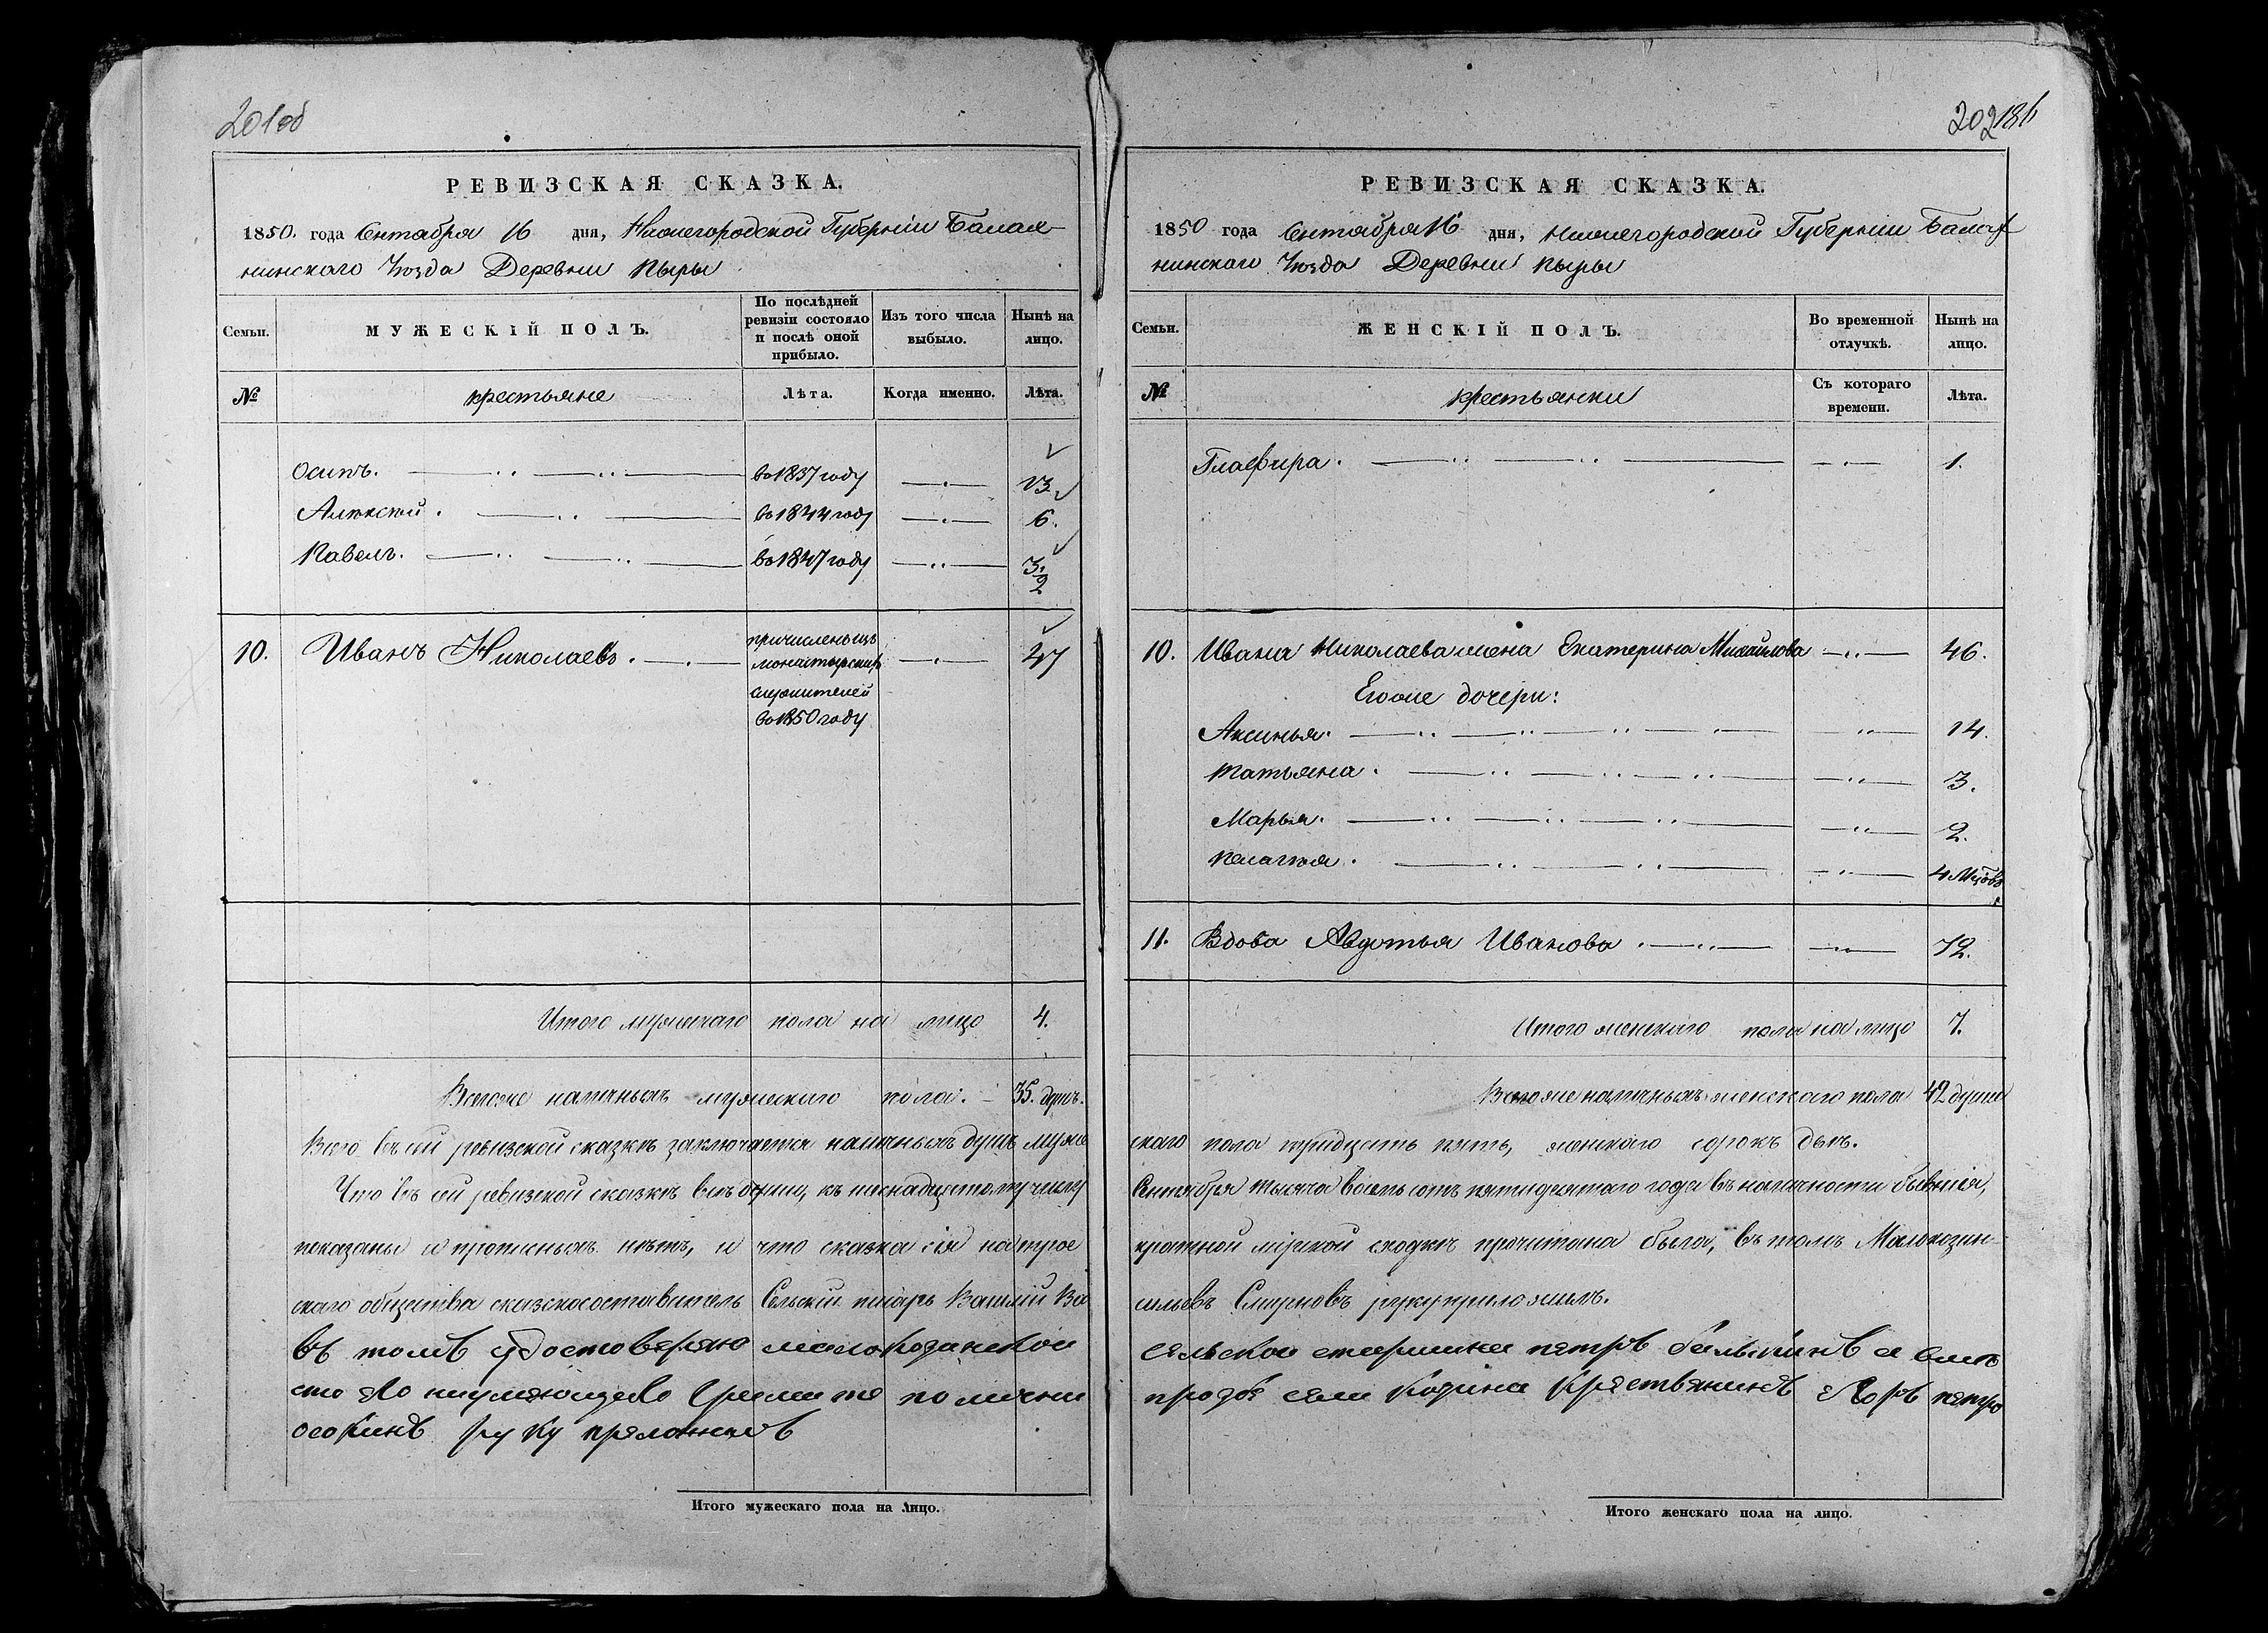 201об
РЕВИЗСКАЯ СКАЗКА.
1850. года Сентября 16 дня, Нижегородской Губерніи Балах-
нинскаго Уѣзда Деревни Пыры
Семьи. МУЖЕСКІЙ ПОЛЪ. По послѣдней ревизіи состояло и послѣ оной прибыло. Изъ того числа выбыло. Нынѣ на лицо.
№ крестьяне Лѣта. Когда именно. Лѣта.
Осипъ. во 1837 году 13.
Алексѣй. во 1844 году 6.
Павелъ. во 1847 году 3.
2
10. Иванъ Николаевъ. причисленъ изъ 47
монастырскихъ
служителей
во 1850 году
Итого мужескаго пола на лицо 4.
Всего же наличныхъ мужескаго пола: 35. душъ.
Всего въ сей ревизской сказкѣ заключается наличныхъ душъ муже
Что въ сей ревизской сказкѣ всѣ души, къ шестнадцатому числу
показаны и прописныхъ нѣтъ, и что сказка сія на трое
скаго общества сказкосоставитель Сельскій писарь Василій Ва
въ томъ удостоверяю малокозинской
сто ево неумеющево грамате по лични
осокинъ руку приложилъ
Итого мужескаго пола на лицо.
202 186
РЕВИЗСКАЯ СКАЗКА.
1850 года Сентября 16 дня, Нижегородской Губерніи Балах
нинскаго Уѣзда Деревни Пыры
Семьи. ЖЕНСКІЙ ПОЛЪ. Во временной отлучкѣ. Нынѣ на лицо.
№ крестьянки Съ котораго времени. Лѣта.
Глафира. 1.
10. Ивана Николаева жена Екатерина Михайлова 46.
Егоже дочери:
Аксинья. 14.
Татьяна. 3.
Марья. 2.
Пелагѣя. 4 мѣсѣцовъ
11. Вдова Авдотья Иванова. 72.
Итого женскаго пола на лицо 7.
Всего же наличныхъ женскаго пола 42 души
скаго пола тридцать пять, женскаго сорокъ двѣ.
Сентября тысяча восемь сотъ пятидесятаго года въ наличности бывшія,
кратной мірской сходкѣ прочитана была, въ томъ Малокозин-
сильевъ Смирновъ руку приложилъ.
сельской старшина петръ а вместо
прозбѣ села Козина Крестьянинъ петро
Итого женскаго пола на лицо.